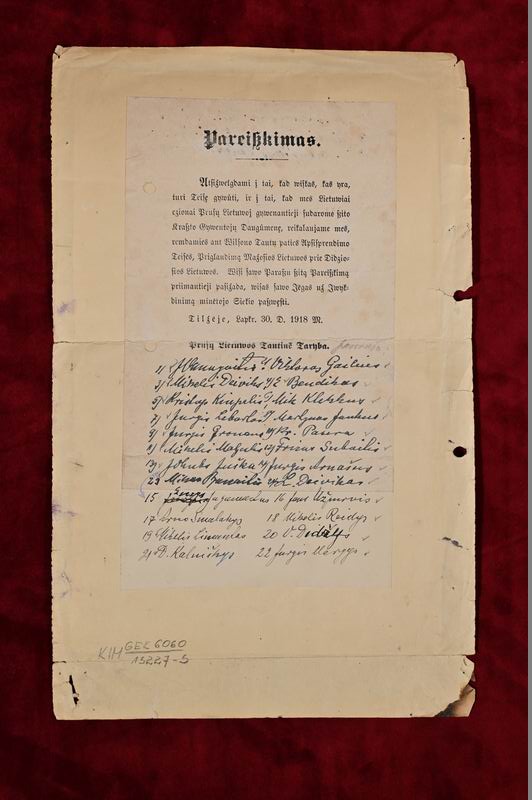 Pareiszkimas.
Atsižwelgdami į tai, kad wiskas, kas yra,
turi Teisę gywūti, ir į tai, kad mes Lietuwiai
czionai Prusų Lietuwoj gywenantieji sudarome szito
Kraszto Gywentojų Daugūmenę, reikalaujame mes,
remdamies ant Wilsono Tautų paties Apsisprendimo
Teisės, Priglaudimą Mažosios Lietuwos prie Didžio-
sios Lietuwos. Wisi sawo Paraszu szitą Pareiszkimą
priimantieji pasižada, wisas sawo Jėgas už Įwyk-
dinimą minėtojo Siekio paszwęsti.
Tilžeje, Lapkr. 30. D. 1918 M.
Prusų Lietuwos Tautinė Taryba.
1) J Vanagaitis 2) Viktoras Gailius
3) Mikelis Deivik 4) E Bendikas
5) Kristups Kiupelis 6) Mik Klečkus
7) Jurgis Lebartas 8) Martynas Jankus
9) Jurgis Gronau 10) Kr. Paura
11) Mikelis Mažulis 12) Fricas Subaitis
13) Jokubs Juška 14) Jurgis Arnašius
23 Mikas Banaitis 24) L. Deivikas
15 Enzys Jagomastas 16 Jons Užmovis
17 Smalakys 18 Mikelis Reidys
19 Mikelis Lymantas 20 V. Didžys
21 D. Kalniškys 22 Jurgis Margys
KIM GEK 6060
15227-5